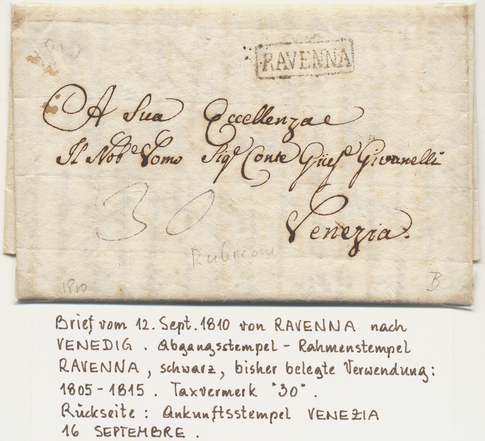 RAVENNA
A Sua Eccellenza
Il Nobᵉ Vomo Sigʳ Conte Giusᵉ Giovanelli
30
Venezia.
Rubicone
1810
B
Brief vom 12. Sept. 1810 von RAVENNA nach
VENEDIG. Abgangsstempel - Rahmenstempel
RAVENNA, schwarz, bisher belegte Verwendung:
1805 - 1815. Taxvermerk "30".
Rückseite: Ankunftsstempel VENEZIA
16 SEPTEMBRE.